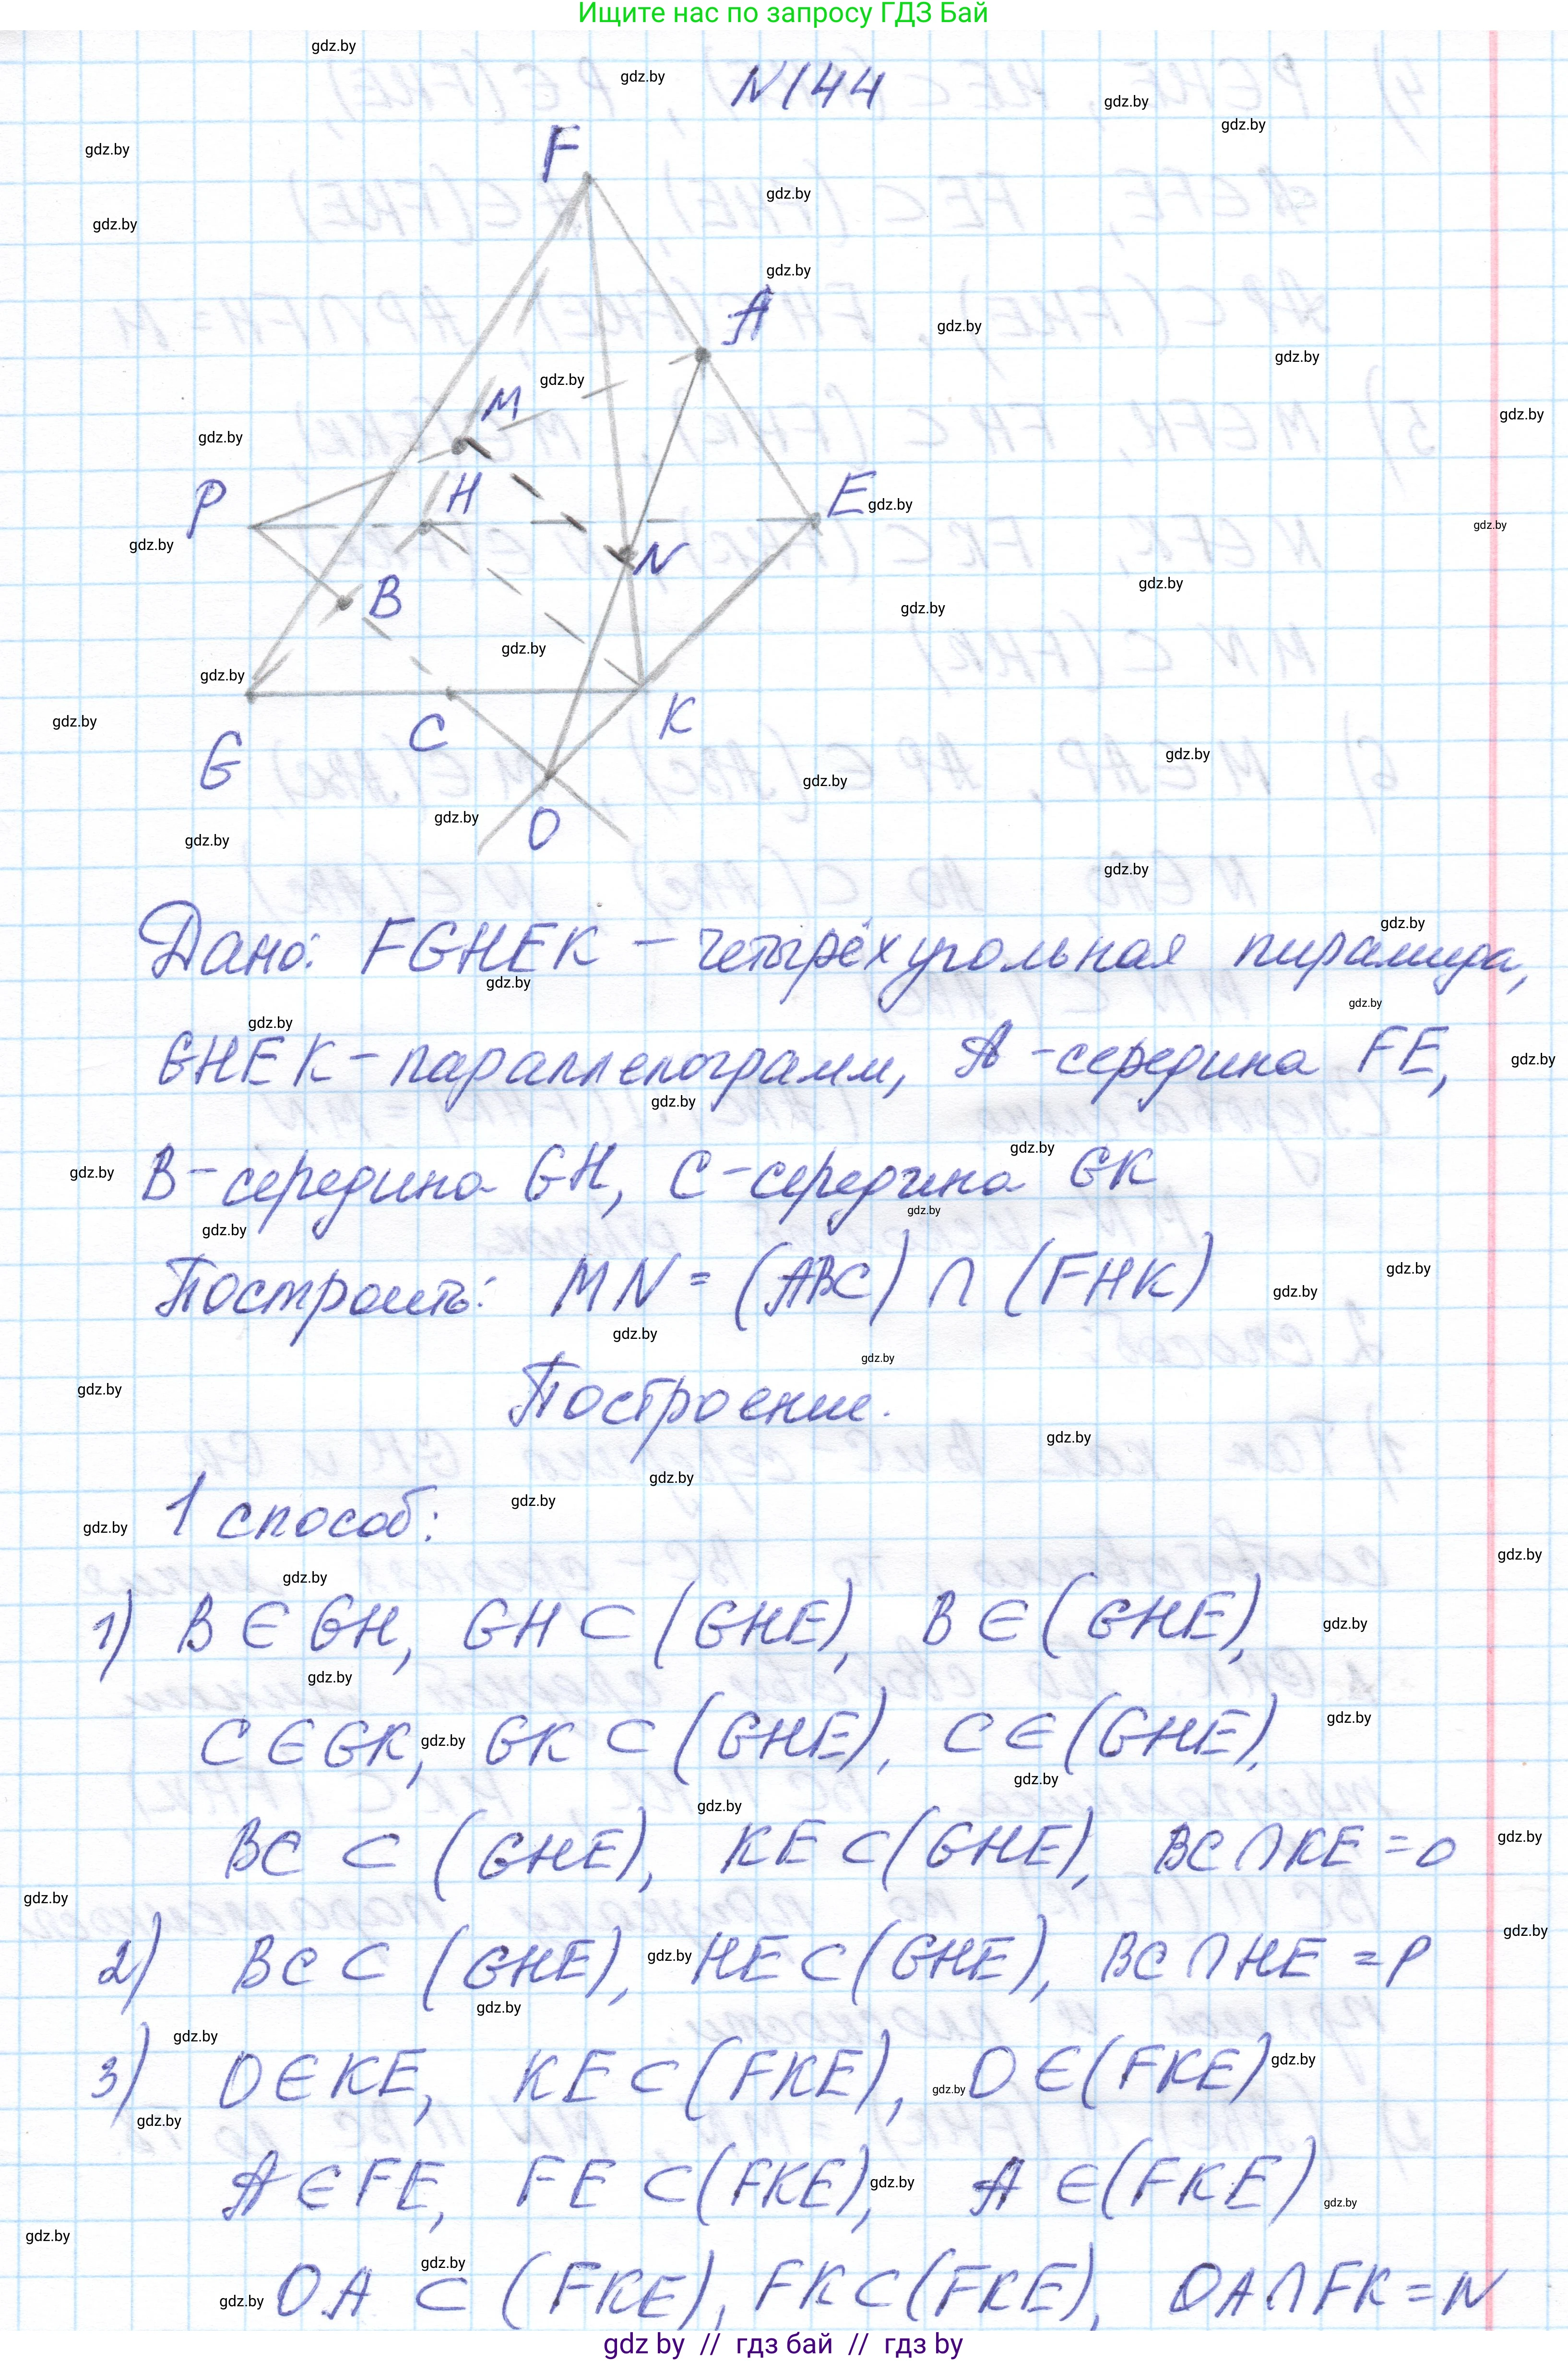 Ищите нас по запросу ГДЗ Бай
N144
F
A
M
H
P
E
N
B
G
C
K
O
Дано: FGHEK – четырёхугольная пирамида,
GHEK – параллелограмм, A – середина FE,
B – середина GH, C – середина GK
Построить: MN = (ABC) ∩ (FHK)
Построение.
1 способ:
1) B ∈ GH, GH ⊂ (GHE), B ∈ (GHE),
C ∈ GK, GK ⊂ (GHE), C ∈ (GHE),
BC ⊂ (GHE), KE ⊂ (GHE), BC ∩ KE = O
2) BC ⊂ (GHE), HE ⊂ (GHE), BC ∩ HE = P
3) O ∈ KE, KE ⊂ (FKE), O ∈ (FKE)
A ∈ FE, FE ⊂ (FKE), A ∈ (FKE)
OA ⊂ (FKE), FK ⊂ (FKE), OA ∩ FK = N
gdz by // гдз бай // гдз by